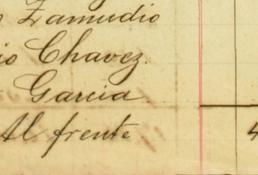 Zamudio
io Chavez.
Garcia
Al frente 4